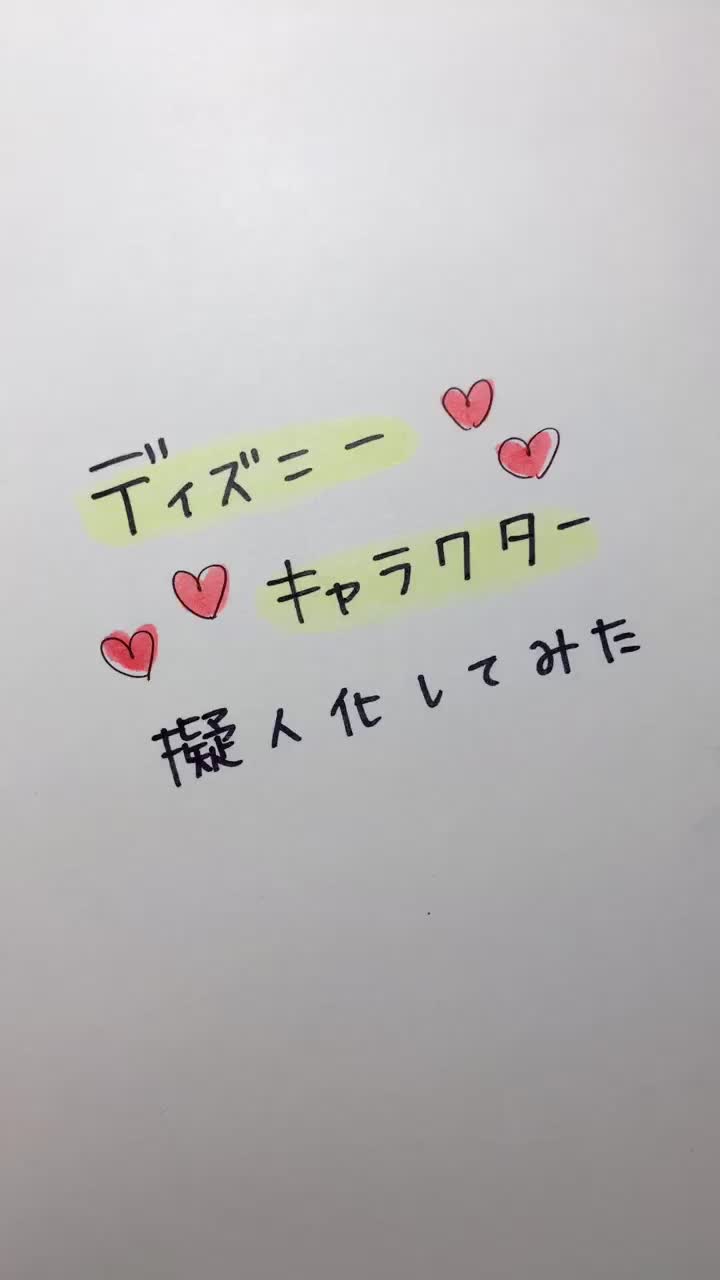 ディズニー
キャラクター
擬人化してみた